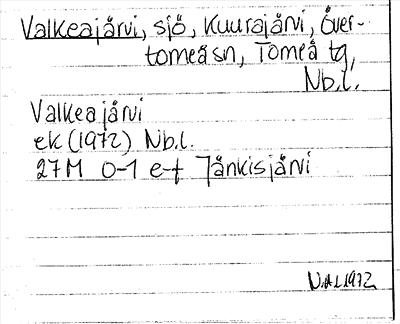 Valkeajärvi, sjö, Kuurajärvi, Över-
torneå sn, Torneå tg,
Nb.l.
Valkeajärvi
ek (1972) Nb.l.
27M 0-1 e-f Jänkisjärvi
N.Å.L 1972